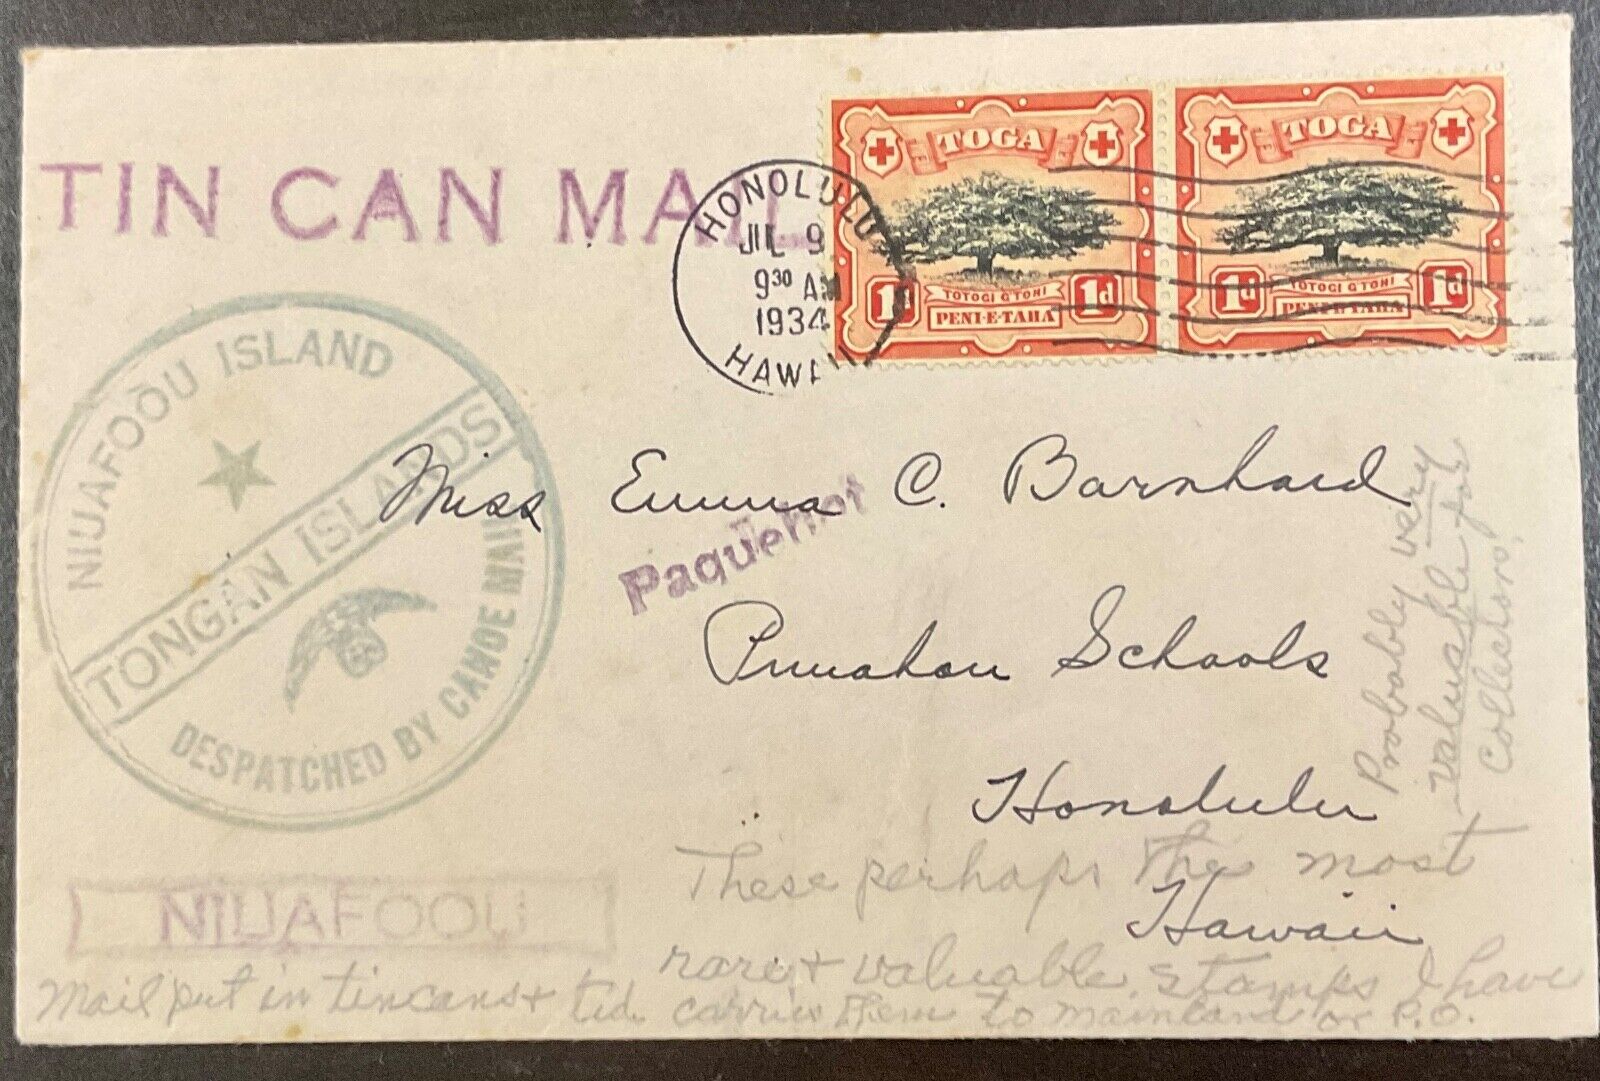 TIN CAN MAIL
HONOLULU
JUL 9
9 30 AM
1934
HAWAII
TOGA
1d TOTOGI G TOHI 1d
PENI-E-TAHA
TOGA
1d TOTOGI G TOHI 1d
PENI-E-TAHA
NIUAFOOU ISLAND
TONGAN ISLANDS
DESPATCHED BY CANOE MAIL
Miss Emma C. Barnhard
Paquebot
Punahou Schools
Honolulu
Hawaii
Probably very
valuable for
collection.
These perhaps the most
rare & valuable stamps I have
NIUAFOOU
Mail put in tin cans & carries them to mainland or P.O.